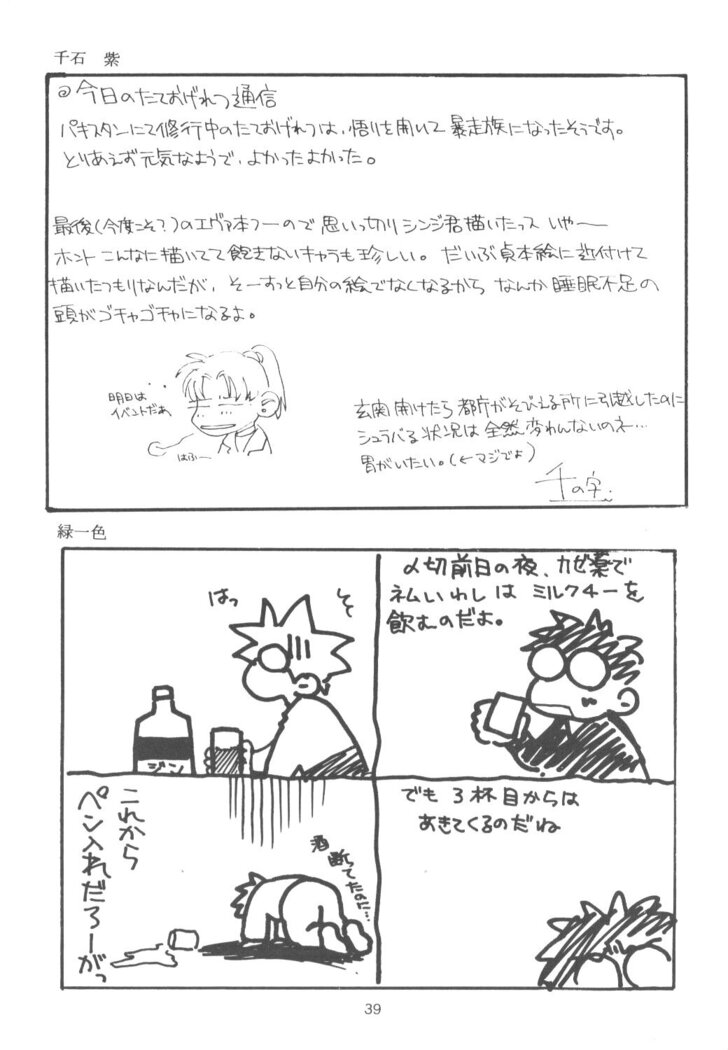 千石 紫
@今日のたておげれつ通信
パキスタンにて修行中のたておげれつは、悟りを開いて暴走族になったそうです。
とりあえず元気なようで、よかったよかった。
最後(今度こそ?)のエヴァ本つーので思いっ切りシンジ君描いたっス いやー
ホント こんなに描いてて飽きないキャラも珍しい。だいぶ貞本絵に近付けて
描いたつもりなんだが、そーすっと自分の絵でなくなるから なんか睡眠不足の
頭がゴチャゴチャになるよ。
明日は
イベントだぁ
はふー
玄関開けたら都庁がそびえる所に引越したのに
シュラバる状況は全然変わんないのネ…
胃がいたい。(←マジでよ)
千の字
緑一色
〆切前日の夜、カゼ薬で
ネムいわしは ミルクチーを
飲むのだよ。
でも 3杯目からは
あきてくるのだね
はっ
そそ
ジン
これから
ペン入れだろーがっ
酒
断ってたのに…
39